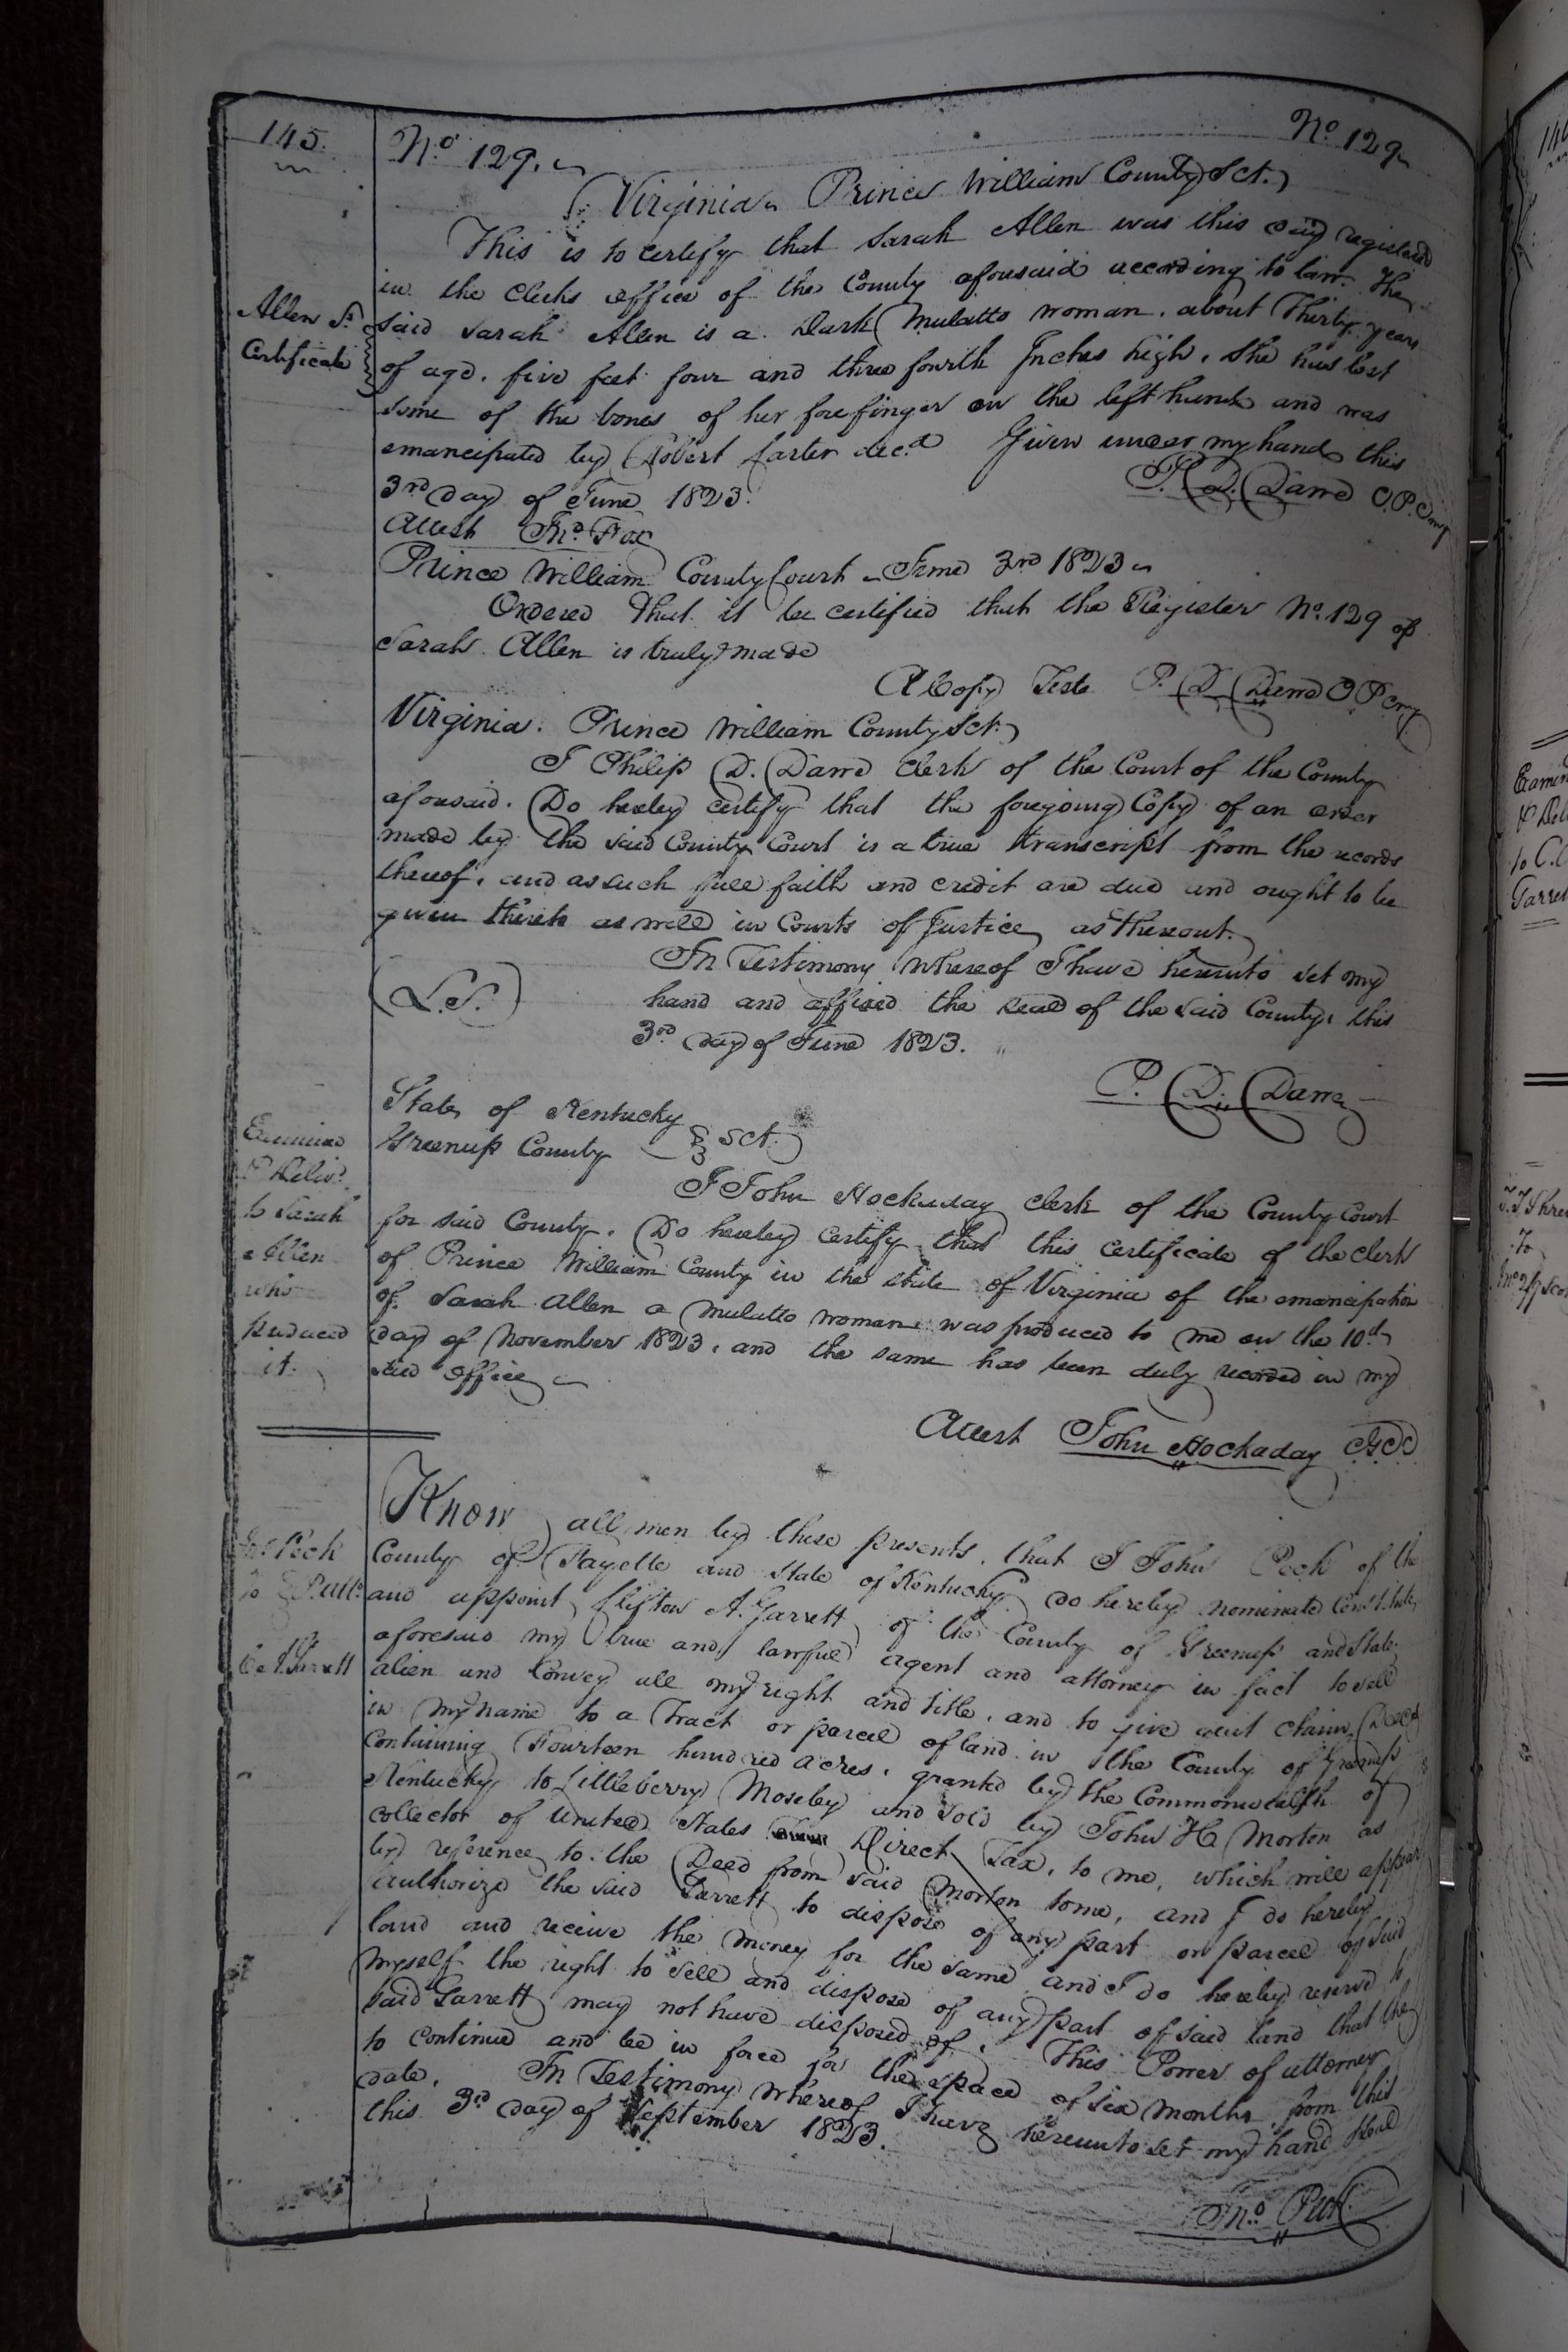 145.
No. 129.
No. 129
Virginia Prince William County Sct.
This is to certify that Sarah Allen was this day registered
in the Clerks office of the County aforesaid according to law. The
Allen S.
Certificate
said Sarah Allen is a Dark Mulatto woman, about Thirty years
of age, five feet four and three fourth Inches high, She has lost
some of the bones of her forefinger on the left hand and was
emancipated by Robert Carter decd. Given under my hand this
3rd day of June 1823.
P. D. Dawe C.P.Cnty
Attest Jno. Fox
Prince William County Court June 3rd 1823
Ordered that it be certified that the Register No. 129 of
Sarah Allen is truly made
A Copy Teste P. D. Dawe C P Cnty
Virginia. Prince William County Sct.
I Philip D. Dawe Clerk of the Court of the County
aforesaid. Do hereby certify that the foregoing Copy of an order
made by the said County Court is a true transcript from the records
thereof, and as such full faith and credit are due and ought to be
given thereto as well in Courts of Justice as thereout.
In Testimony Whereof I have hereunto set my
(L.S.)
hand and affixed the seal of the said County, this
3rd day of June 1823.
P. D. Dawe
State of Kentucky
Greenup County Sct.
Examined
& Delivd.
to Sarah
Allen
who
produced
it.
I John Hockaday Clerk of the County Court
for said County, Do hereby certify that this certificate of the clerk
of Prince William County in the state of Virginia of the emancipation
of Sarah Allen a Mulatto woman was produced to me on the 10th
day of November 1823, and the same has been duly recorded in my
said office
Attest John Hockaday
Jno. Peck
to
C A Garrett
Know all men by these presents, that I John Peck of the
County of Fayette and State of Kentucky do hereby nominate Constitute
and appoint Clifton A. Garrett of the County of Greenup and State
aforesaid my true and lawful agent and attorney in fact to sell
alien and Convey all my right and title, and to give quit claim Deed
in my name to a Tract or parcel of land in the County of Greenup
Containing Fourteen hundred acres, granted by the Commonwealth of
Kentucky to Littleberry Moseley and sold by John H Morton as
collector of United States Direct Tax, to me, which will appear
by reference to the Deed from said Morton to me, and I do hereby
authorize the said Garrett to dispose of any part or parcel of said
land and receive the money for the same and I do hereby reserve to
myself the right to sell and dispose of any part of said land that the
said Garrett may not have disposed of. This Power of attorney
to continue and be in force for the space of six months, from this
date. In Testimony whereof I have hereunto set my hand seal
this 3rd day of September 1823.
Jno. Peck